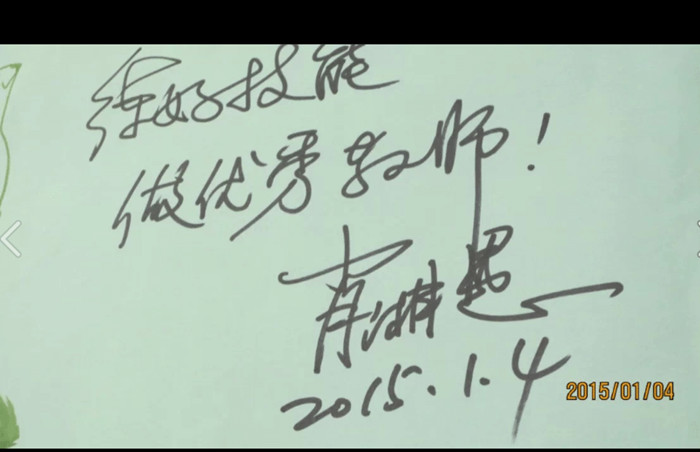 练好技能
做优秀教师！
2015.1.4
2015/01/04